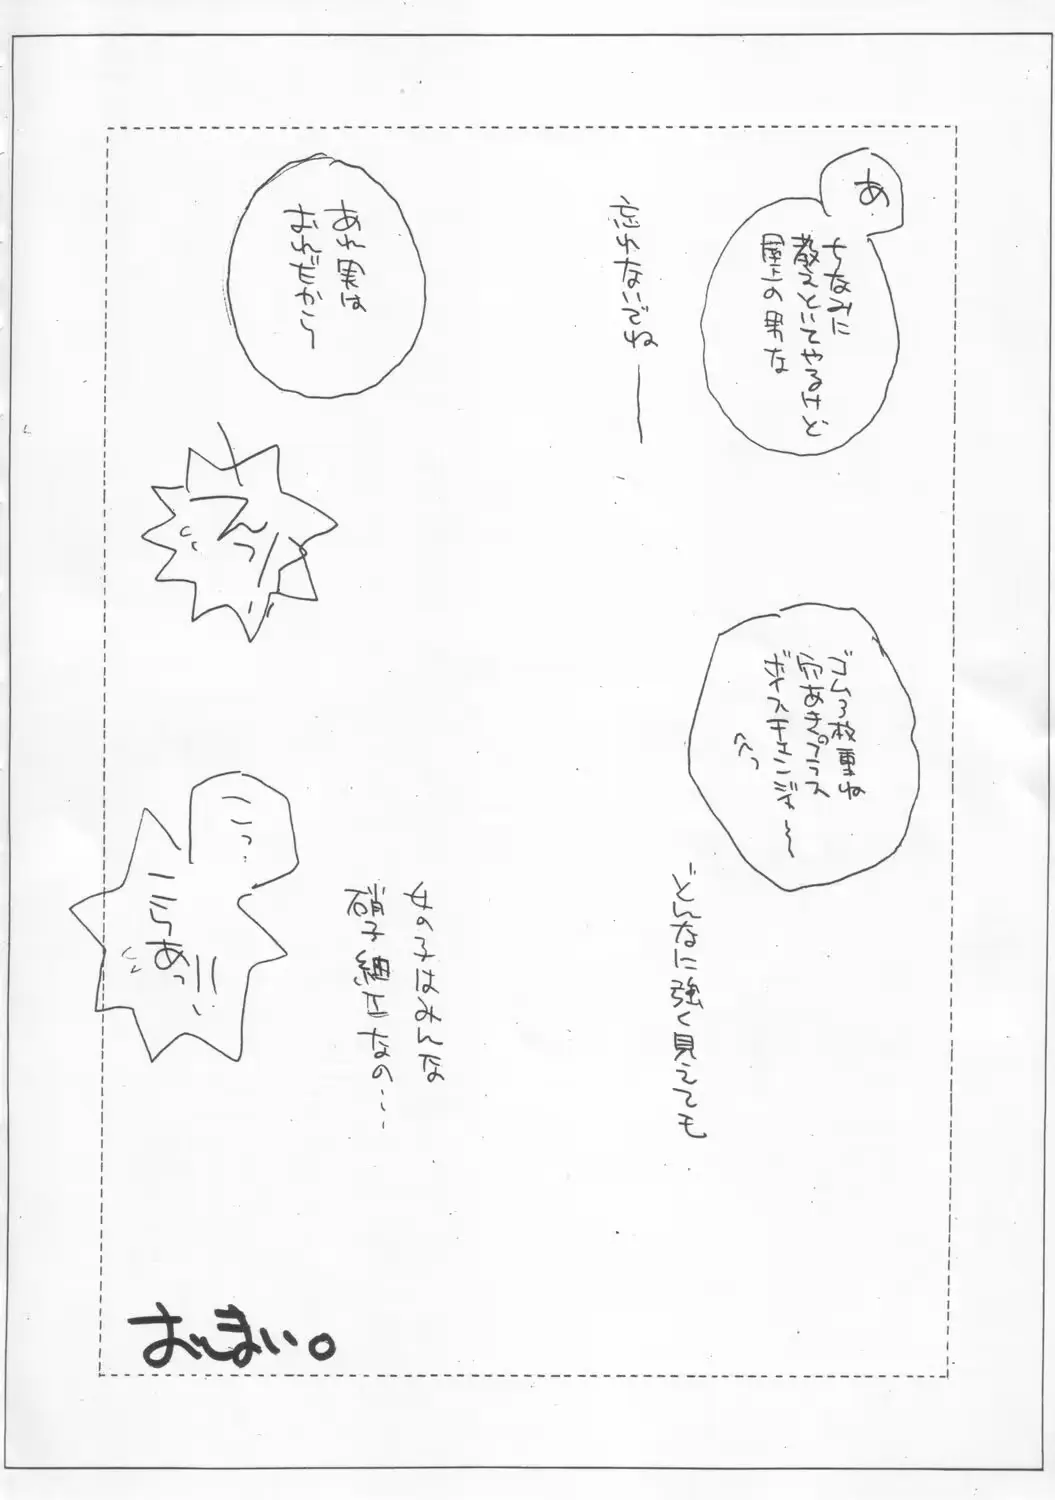 あ
ちなみに
教えといてやるけど
屋上の男な
忘れないでね――
あれ実は
おれだから〜
えっ
ゴム3枚重ね
穴あきプラス
ボイスチェンジャ〜
へへっ
どんなに強く見えても
女の子はみんな
硝子細工なの…
こっ
こらあっ
おしまい。